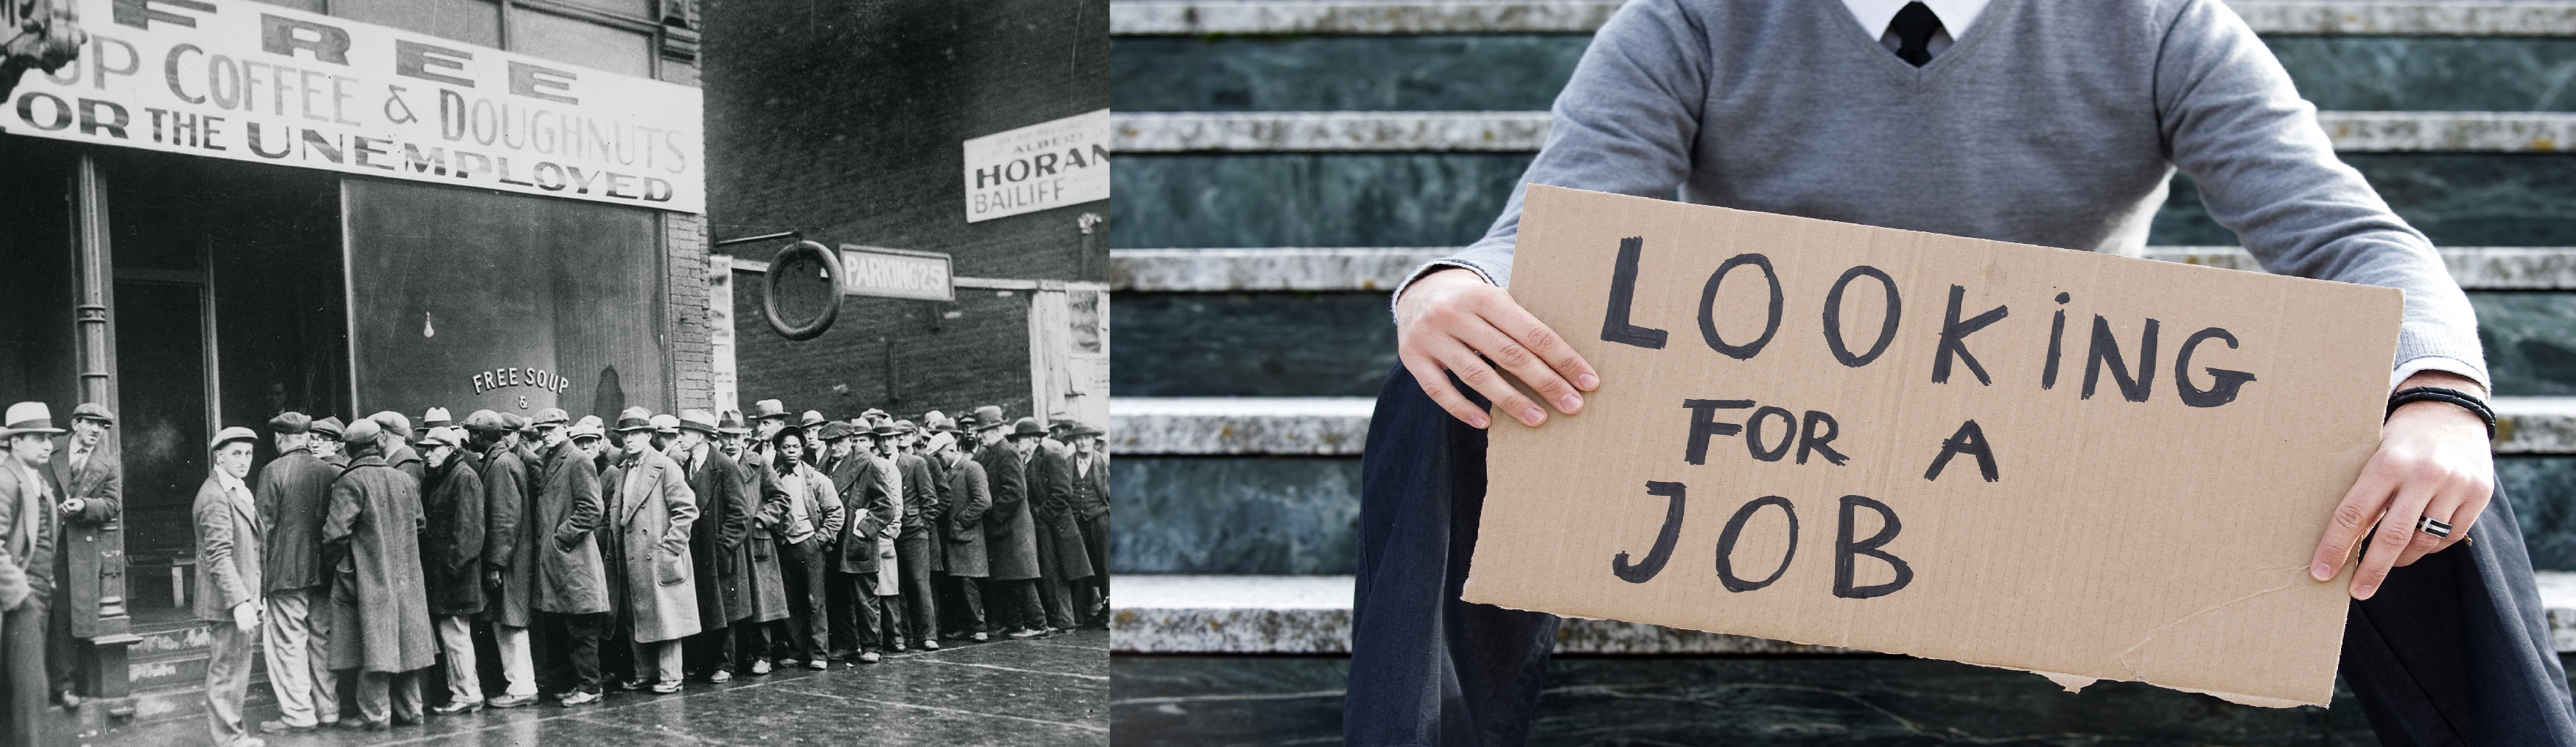 FREE
UP COFFEE & DOUGHNUTS
OR THE UNEMPLOYED
FREE SOUP
&
ALBERT
HORAN
BAILIFF
PARKING 25¢
LOOKiNG
FOR A
JOB